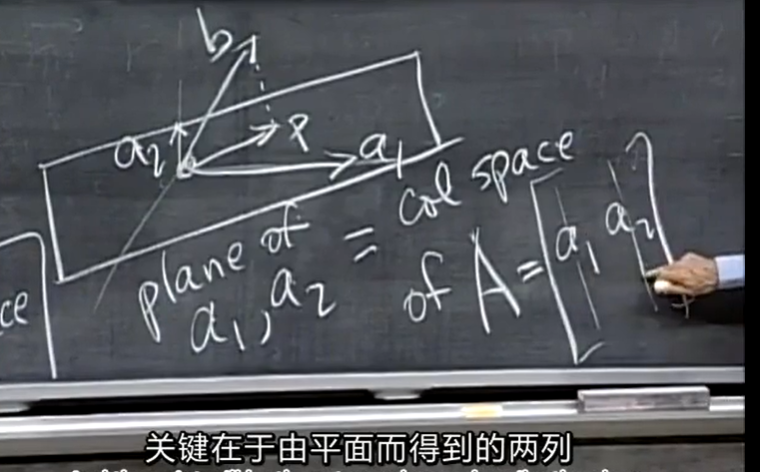 b
a₂
p
a₁
plane of
a₁, a₂
= col space
of A = [a₁ a₂]
ce
关键在于由平面而得到的两列